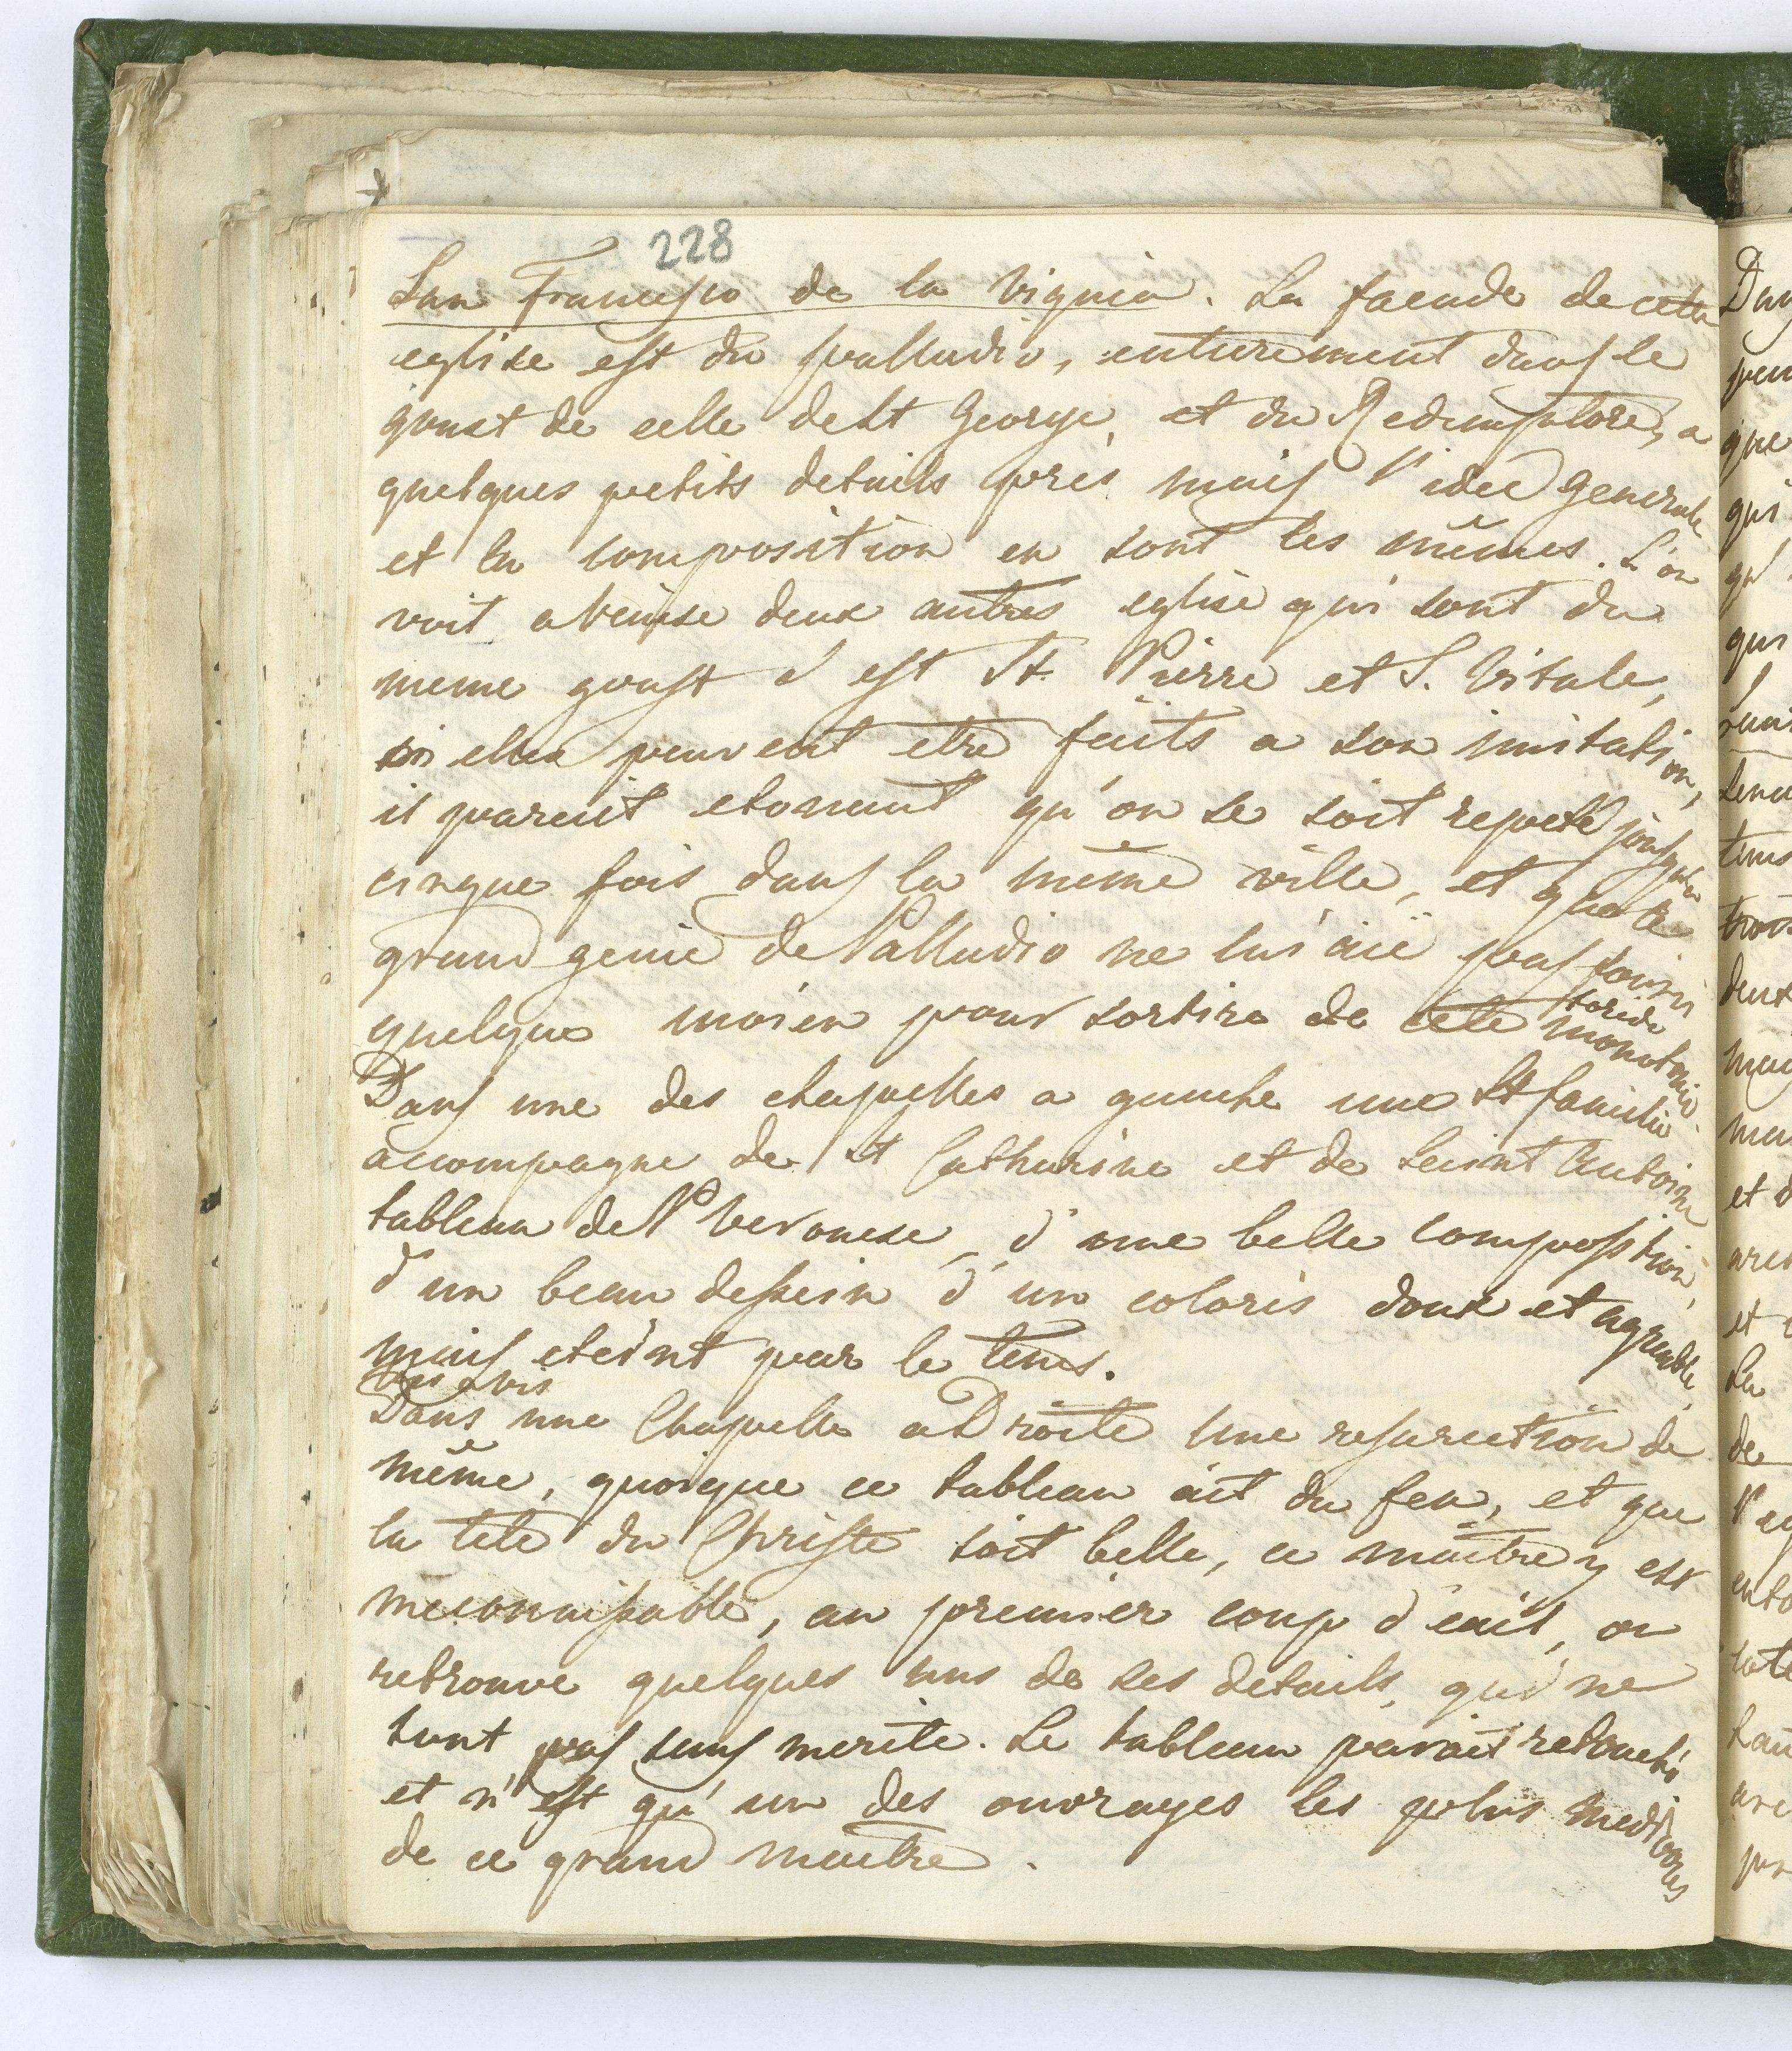 228
San Francesco de la Vignia. La facade de cette
eglise est du Palladio, entierement dans le
goust de celle de St George, et du Redemptore, a
quelques petits details prés mais l'idée generale
et la composition en sont les mêmes. L'on
voit a Venise deux autres eglise qui sont du
meme goust c'est St. Pierre et S. Vitale,
si elles peuvent etre faits a son imitation,
il parait etonant qu'on se soit repeté jousqu'a
cinque fois dans la même ville, et que le
grand genie de Palladio ne lui aie pas fourni
quelque moien pour sortire de cete monotonie.
Dans une des chapelles a gauche une St familie
acompagne de St Catharine et de Saint Antoine
tableau de P Veronese, d'une belle composition,
d'un beau dessein d'un coloris doux et agreable,
mais eteint par le tems.
vis a vis
Dans une Chapelle a Droite Une resurection de
même, quoique ce tableau ait du feu, et que
la tete du Christe soit belle, ce maitre y est
meconaissable, au premier coup d'euil, on
retrouve quelques uns de ses details, qui ne
sont pas sans merite. Le tableau parait retouché
et n'est qu'un des ouvrages les plus mediocres
de ce grand maitre.